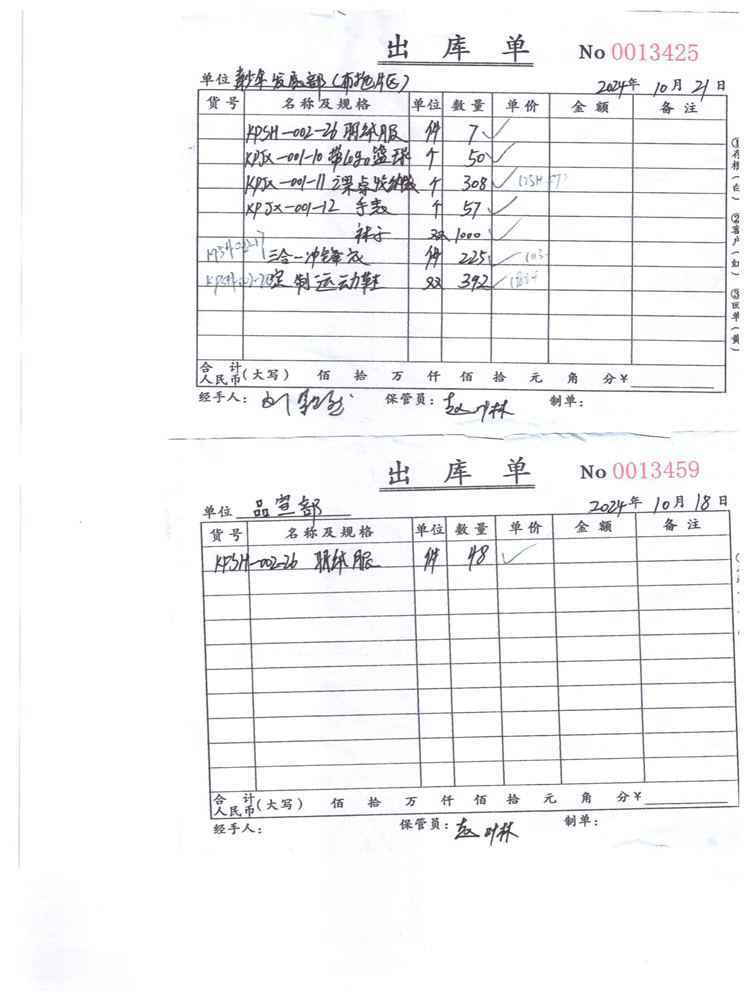 出 库 单 No 0013425
单位 发展部(布拖片区) 2024年 10月 21日
货号 名称及规格 单位 数量 单价 金额 备注
KPSH-002-26 羽绒服 件 7 ✓
KPJX-001-10 带logo篮球 个 50 ✓
KPJX-001-11 个 308 ✓
KPJX-001-12 手表 个 57 ✓
袜子 双 1000 ✓
三合一冲锋衣 件 225 ✓
定制运动鞋 双 392 ✓
合计
人民币(大写) 佰 拾 万 仟 佰 拾 元 角 分 ¥
经手人: 保管员: 赵 林 制单:
①存根(白) ②客户(红) ③回单(黄)
出 库 单 No 0013459
单位 品宣部 2024年 10月 18日
货号 名称及规格 单位 数量 单价 金额 备注
KPSH-002-26 羽绒服 件 48 ✓
合计
人民币(大写) 佰 拾 万 仟 佰 拾 元 角 分 ¥
经手人: 保管员: 赵 林 制单: